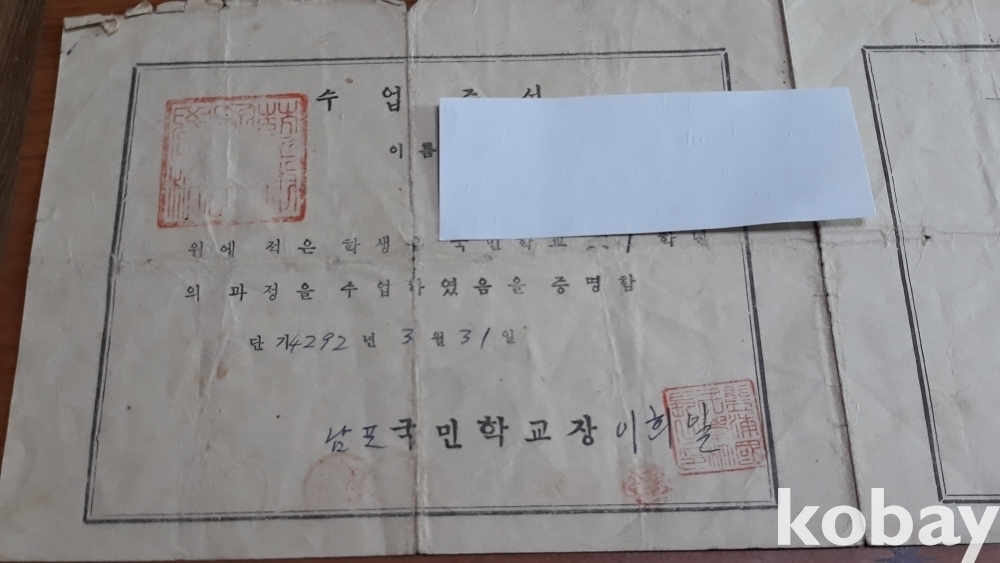 수 업
이 름
위에 적은 학생은 국민학교 제1학년
의 과정을 수업하였음을 증명함
단기 4292년 3월 31일
남포국민학교장 이희밀
kobay